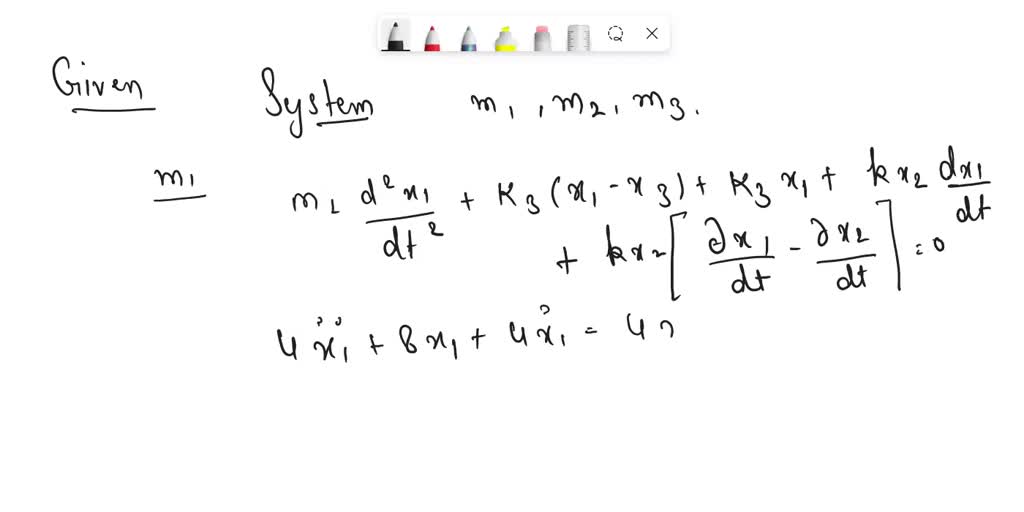 Given System m1, m2, m3.
m1 m2 d²x1/dt² + K3(x1 - x3) + K3 x1 + kx2 dx1/dt
+ kx2[∂x1/dt - ∂x2/dt] = 0
4ẍ1 + 8x1 + 4ẋ1 = 4